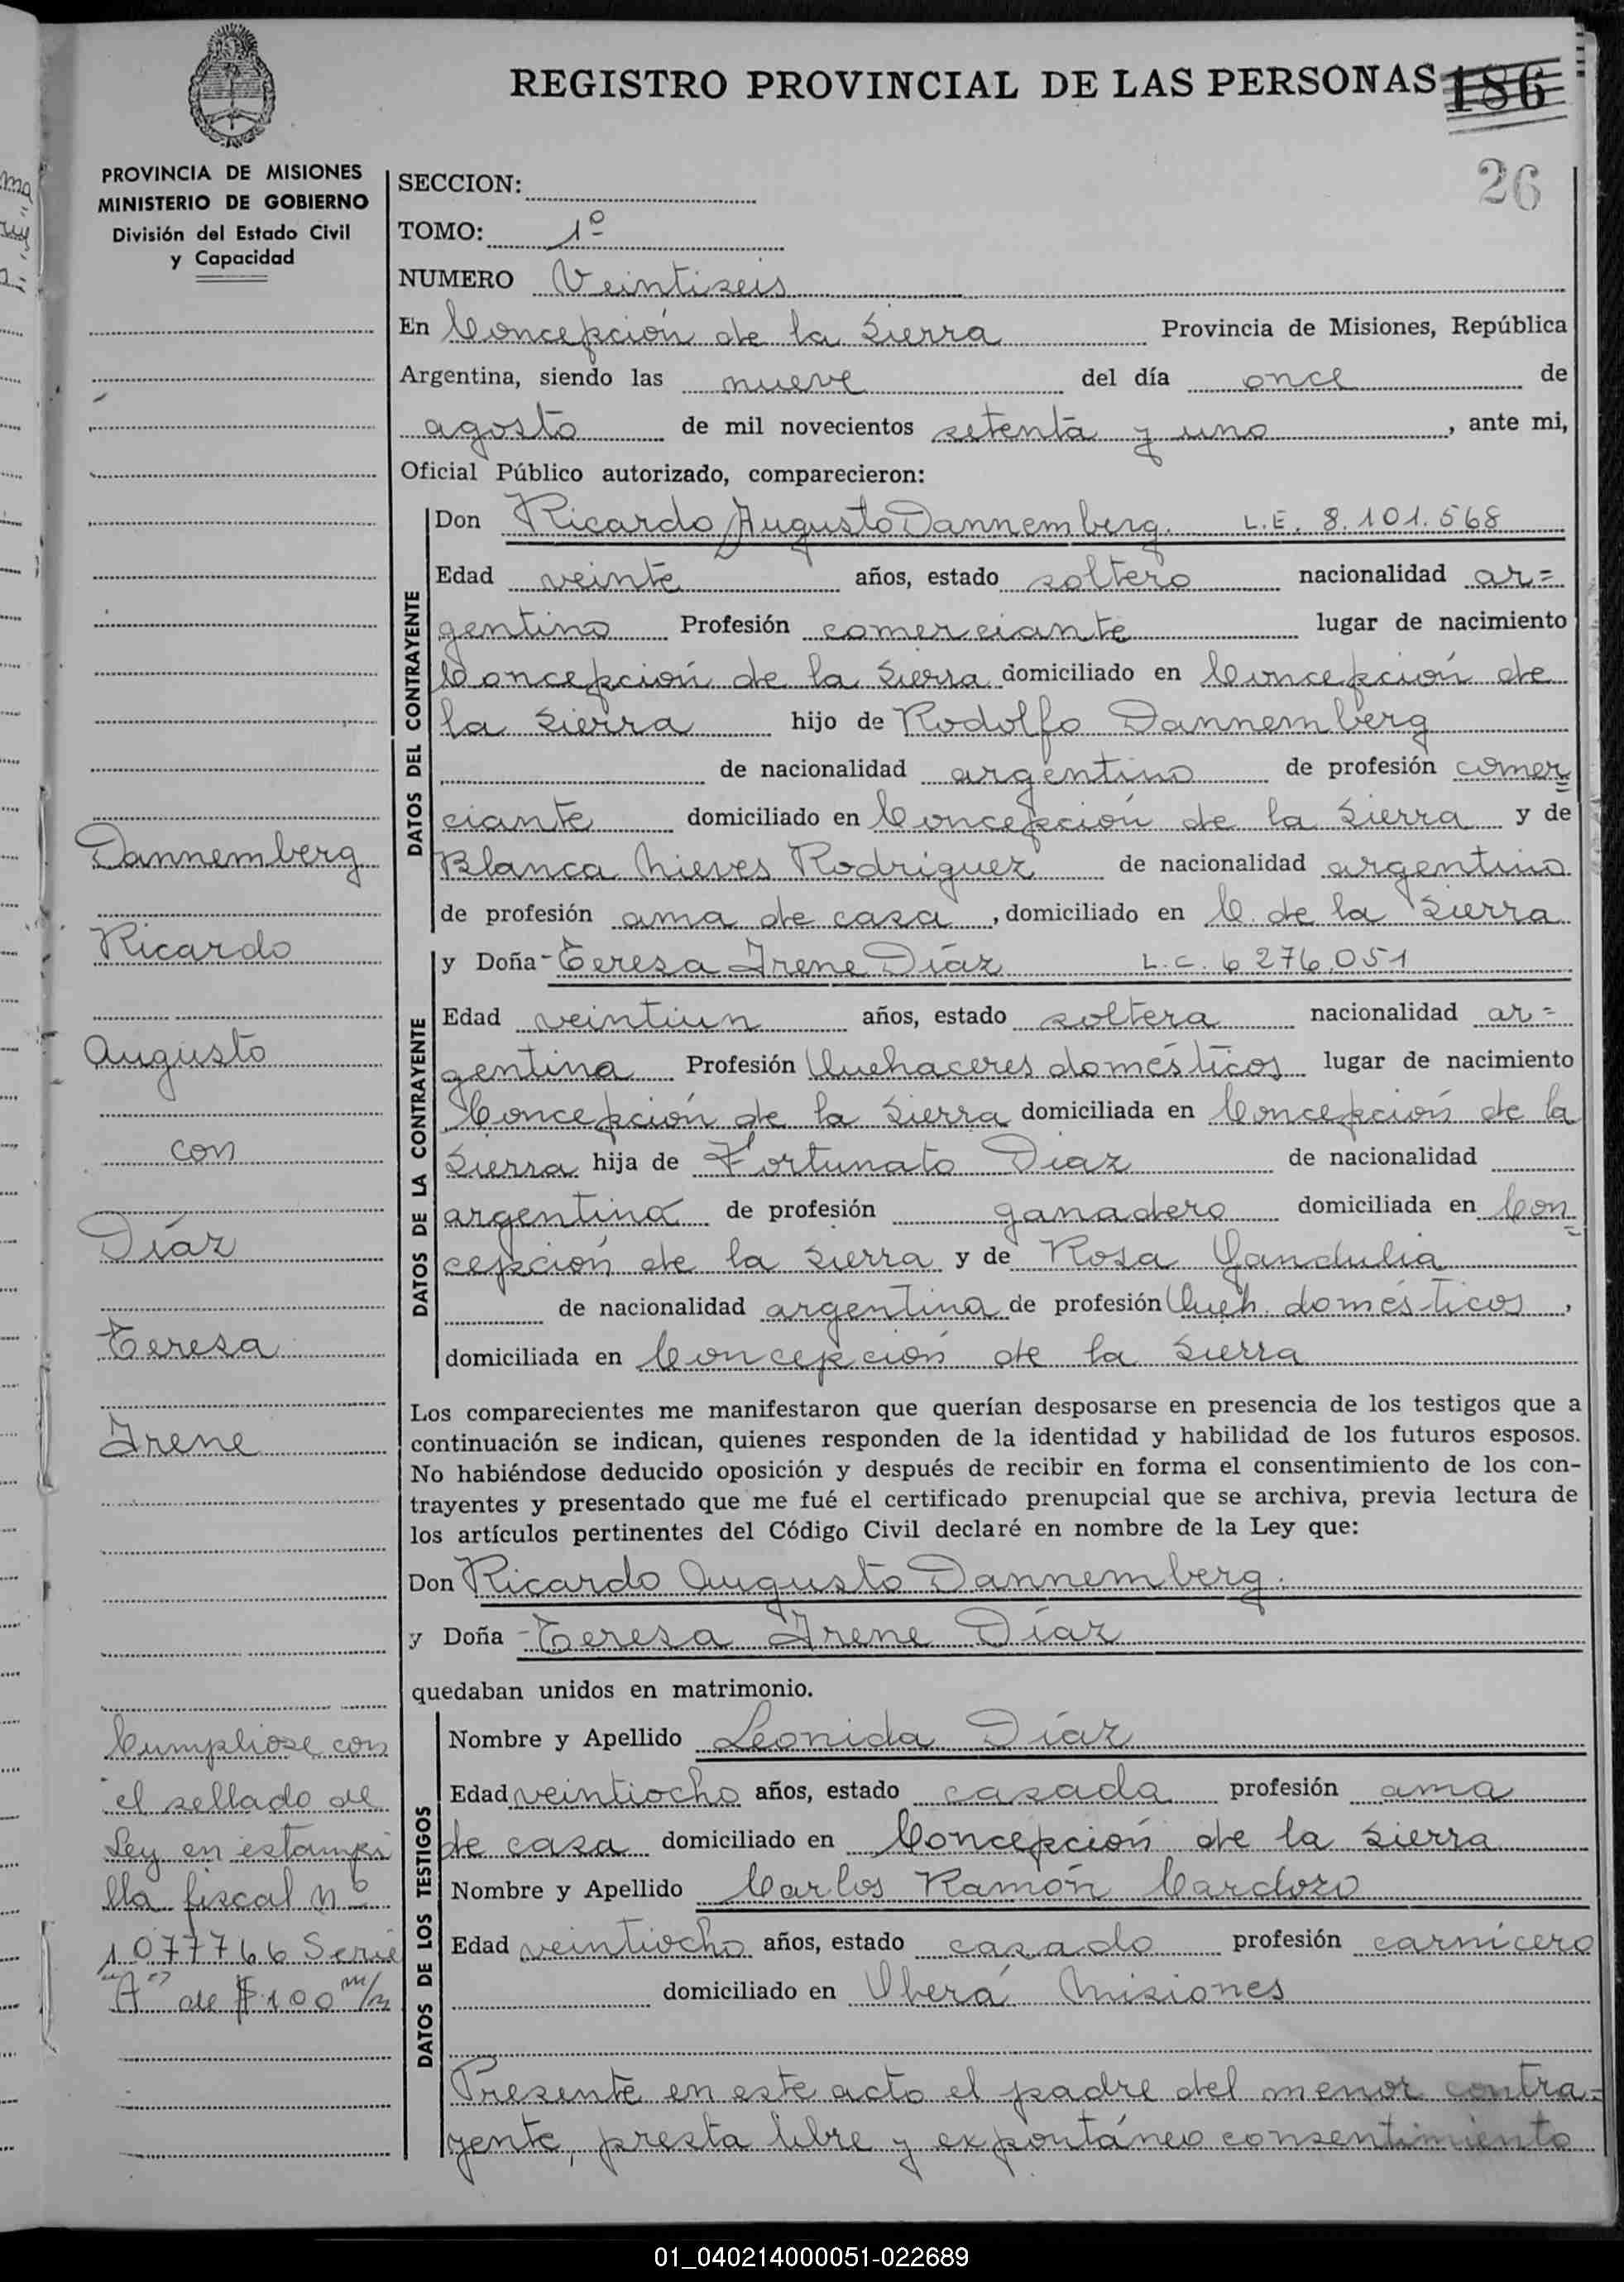 REGISTRO PROVINCIAL DE LAS PERSONAS 186
26
PROVINCIA DE MISIONES
MINISTERIO DE GOBIERNO
División del Estado Civil
y Capacidad
Dannemberg
Ricardo
Augusto
con
Díaz
Teresa
Irene
Cumpliose con
el sellado de
Ley en estampi
lla fiscal nº
1077766 Serie
"A" de $ 100 m/n
SECCION:
TOMO: 1º
NUMERO Veintiseis
En Concepción de la Sierra Provincia de Misiones, República
Argentina, siendo las nueve del día once de
agosto de mil novecientos setenta y uno, ante mi,
Oficial Público autorizado, comparecieron:
DATOS DEL CONTRAYENTE
Don Ricardo Augusto Dannemberg. L.E. 8.101.568
Edad veinte años, estado soltero nacionalidad ar=
gentino Profesión comerciante lugar de nacimiento
Concepción de la Sierra domiciliado en Concepción de
la Sierra hijo de Rodolfo Dannemberg
de nacionalidad argentino de profesión comer=
ciante domiciliado en Concepción de la Sierra y de
Blanca Nieves Rodriguez de nacionalidad argentino
de profesión ama de casa, domiciliado en C. de la Sierra
DATOS DE LA CONTRAYENTE
y Doña Teresa Irene Díaz L.C. 6 276.051
Edad veintiun años, estado soltera nacionalidad ar=
gentina Profesión Quehaceres domésticos lugar de nacimiento
Concepción de la Sierra domiciliada en Concepción de la
Sierra hija de Fortunato Diaz de nacionalidad
argentina de profesión ganadero domiciliada en Con=
cepción de la Sierra y de Rosa Gandulia
de nacionalidad argentina de profesión Queh. domésticos,
domiciliada en Concepción de la Sierra
Los comparecientes me manifestaron que querían desposarse en presencia de los testigos que a
continuación se indican, quienes responden de la identidad y habilidad de los futuros esposos.
No habiéndose deducido oposición y después de recibir en forma el consentimiento de los con-
trayentes y presentado que me fué el certificado prenupcial que se archiva, previa lectura de
los artículos pertinentes del Código Civil declaré en nombre de la Ley que:
Don Ricardo Augusto Dannemberg.
y Doña Teresa Irene Díaz
quedaban unidos en matrimonio.
DATOS DE LOS TESTIGOS
Nombre y Apellido Leonida Díaz
Edad veintiocho años, estado casada profesión ama
de casa domiciliado en Concepción de la Sierra
Nombre y Apellido Carlos Ramón Cardozo
Edad veintiocho años, estado casado profesión carnicero
domiciliado en Oberá Misiones
Presente en este acto el padre del menor contra=
yente, presta libre y expontáneo consentimiento
01_040214000051-022689